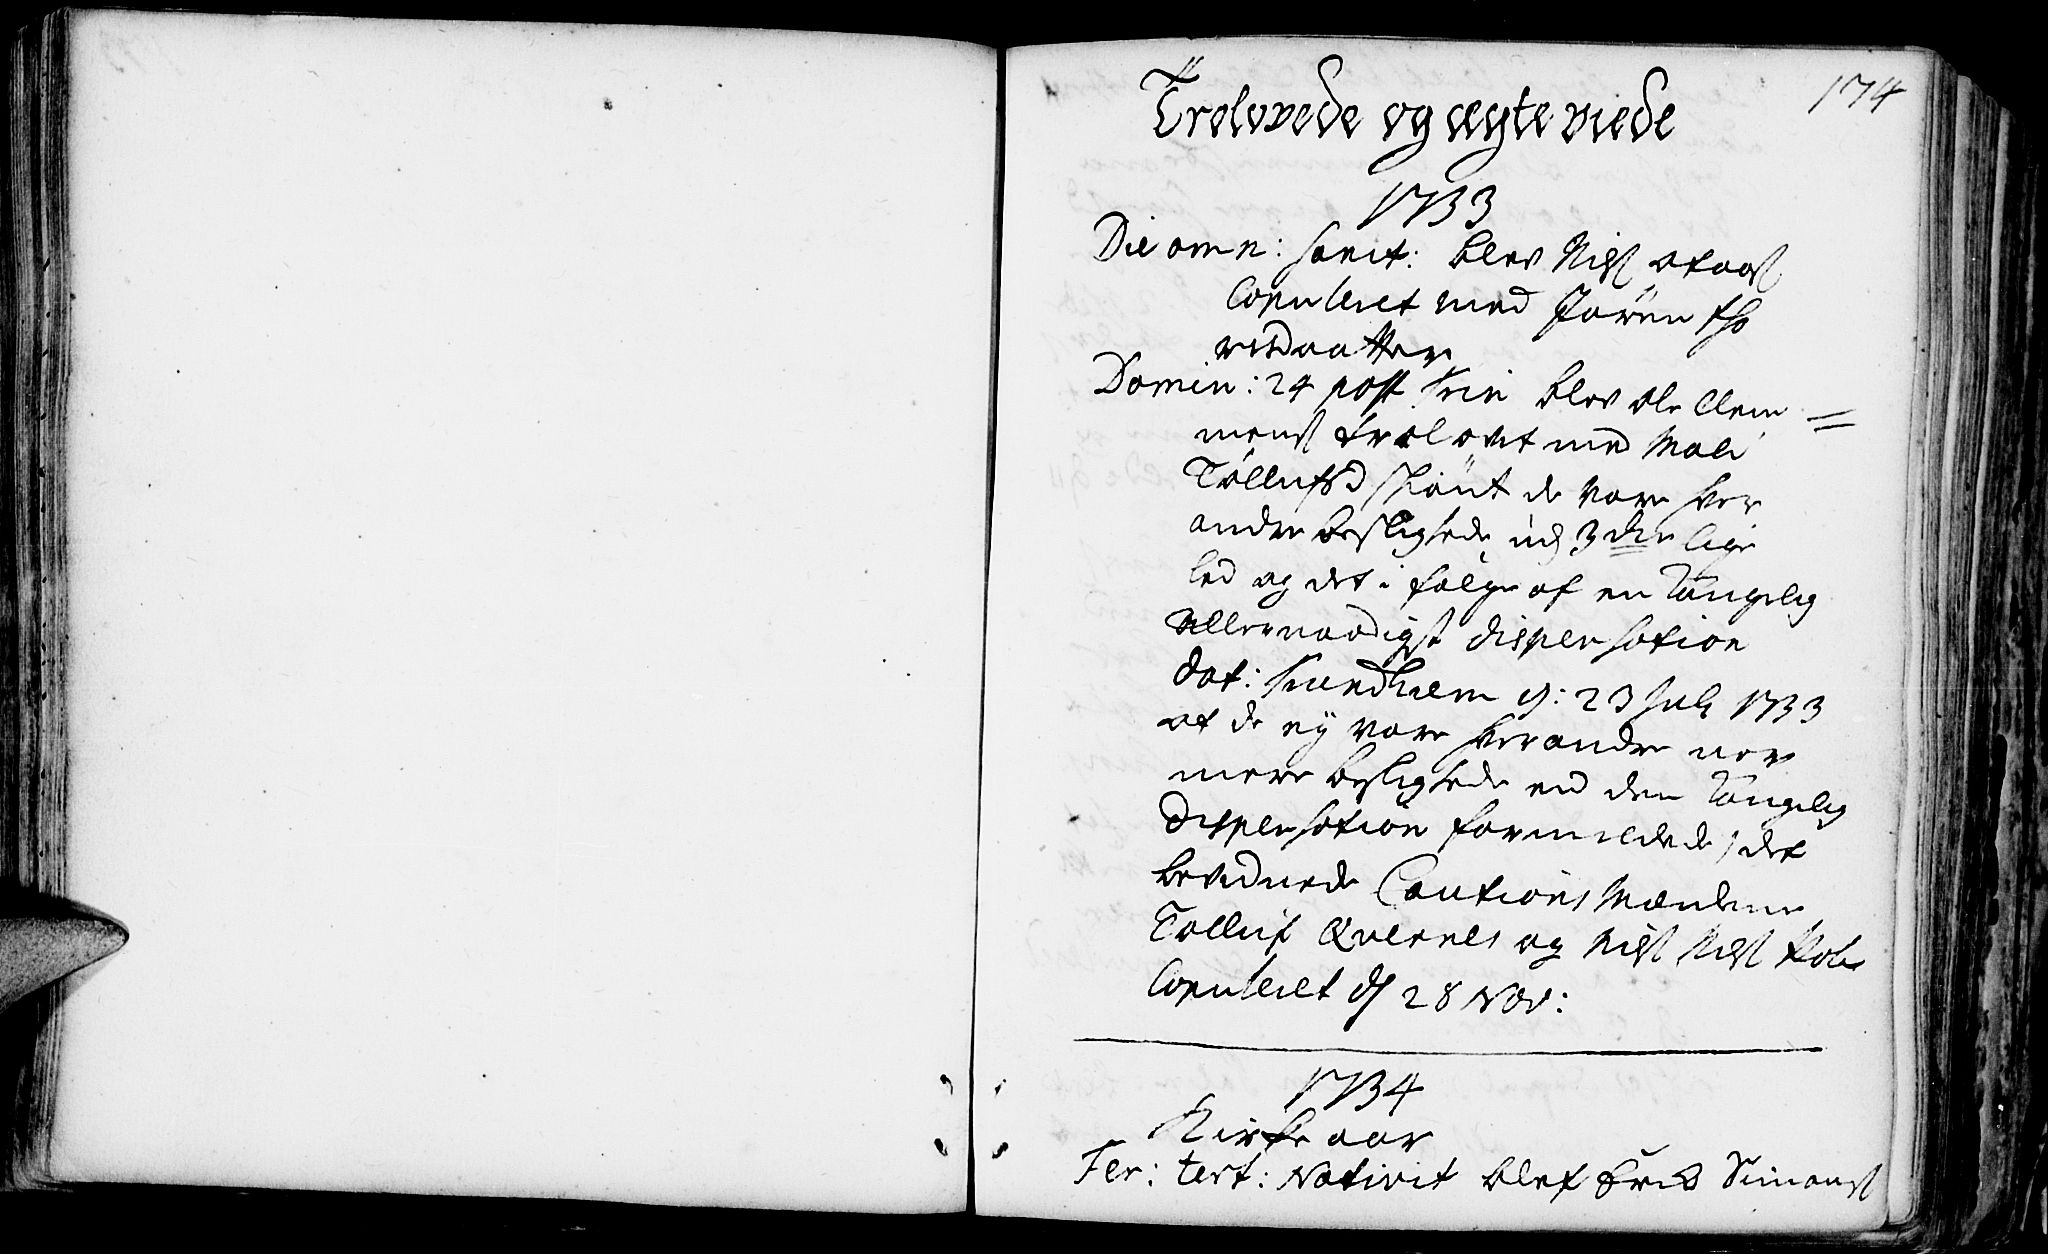 174
Trolovede og ægteviede
1733
Die omn: sanct: blev Niels
Copuleret med Jorèn Tho
risdaatter
Domin: 24 post Trin blev Ole Clem =
mens: trolovet med Mali
Tøllufsd skiönt de vare hver
andre beslegtede udj 3die lige
led og det i følge af en kongelig
Allernaadigst dispensation
dat: Trundhiem d: 23 July 1733
at de ey vare hverandre nær
mere beslegtede end den kongelig
dispensation formeldede, det
bevidnede Cautions Mændene
Tølluf Qvernes og Niels Niels:
Copuleret d 28 Nov:
1734
Kirke aar
Fer: tert: Nativit blef Erik Simons: